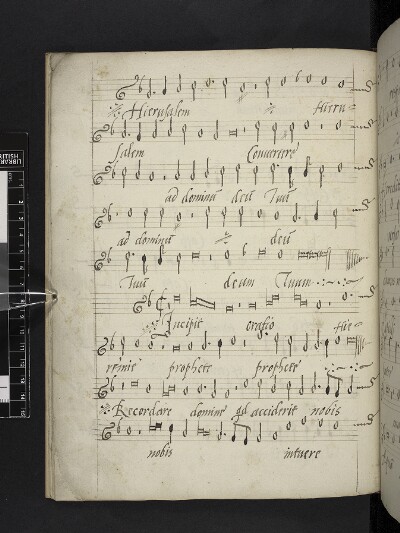 Hierusalem Hieru=
salem Conuertere
ad dominū deū Tuū
ad dominū deū
Tuū deum Tuum
Incipit oratio Hie
remie prophete prophete
Recordare domine qd acciderit nobis
nobis intuere